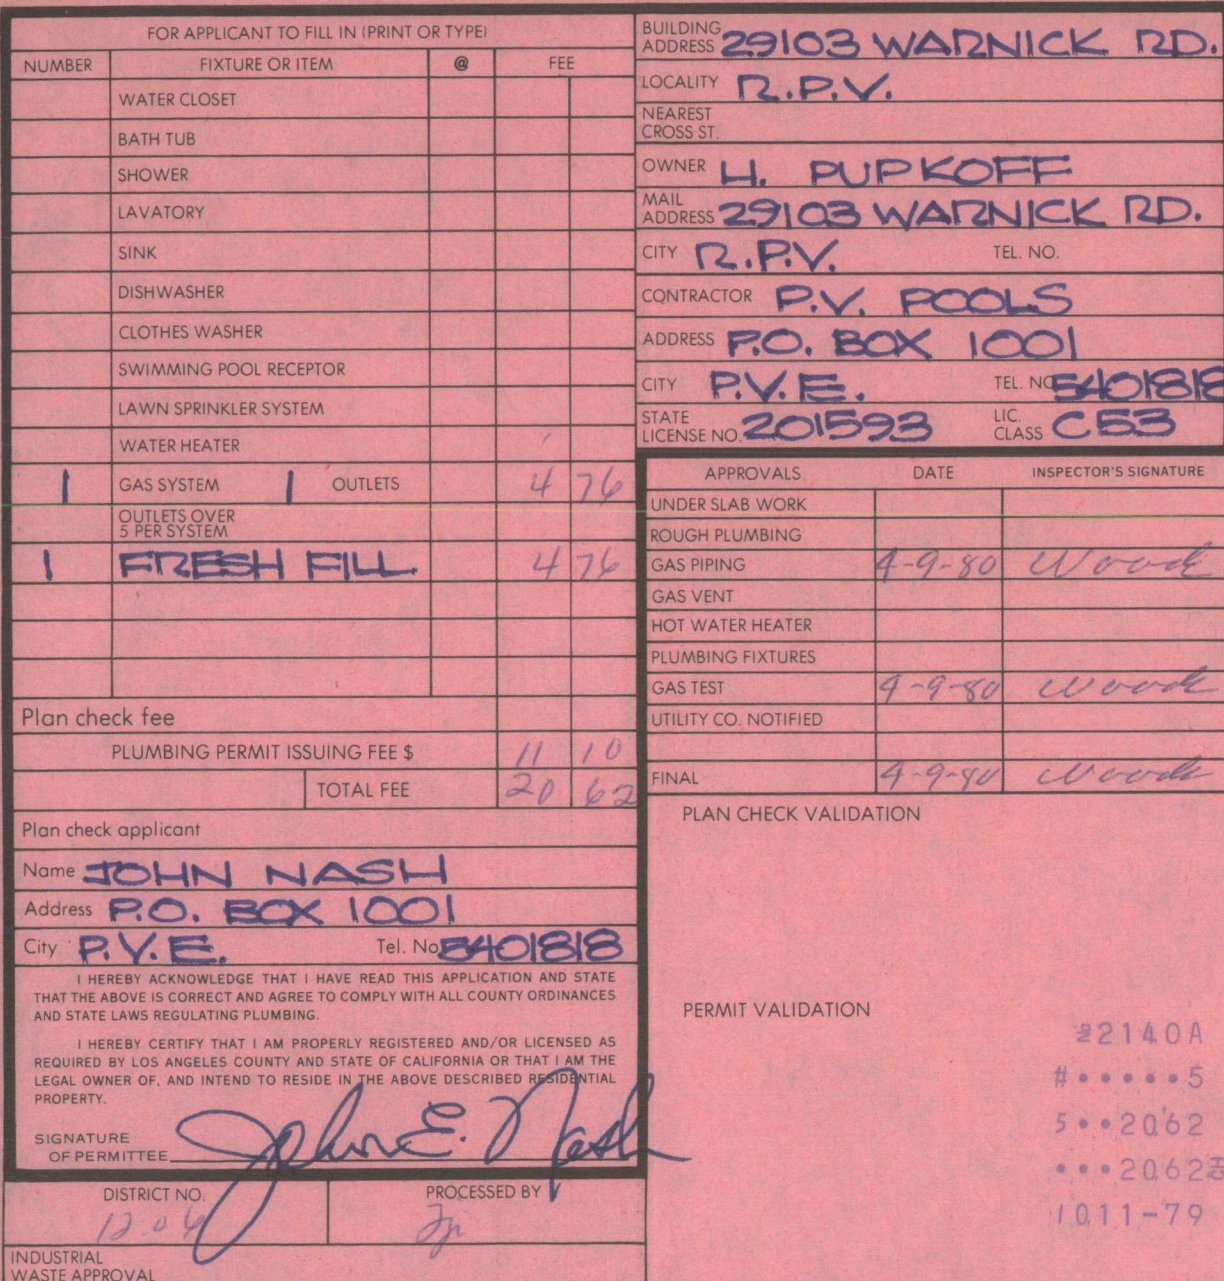 FOR APPLICANT TO FILL IN (PRINT OR TYPE)
NUMBER FIXTURE OR ITEM @ FEE
WATER CLOSET
BATH TUB
SHOWER
LAVATORY
SINK
DISHWASHER
CLOTHES WASHER
SWIMMING POOL RECEPTOR
LAWN SPRINKLER SYSTEM
WATER HEATER
1 GAS SYSTEM 1 OUTLETS 4 76
OUTLETS OVER
5 PER SYSTEM
1 FRESH FILL 4 76
Plan check fee
PLUMBING PERMIT ISSUING FEE $ 11 10
TOTAL FEE 20 62
Plan check applicant
Name JOHN NASH
Address P.O. BOX 1001
City P.V.E. Tel. No 5401818
I HEREBY ACKNOWLEDGE THAT I HAVE READ THIS APPLICATION AND STATE
THAT THE ABOVE IS CORRECT AND AGREE TO COMPLY WITH ALL COUNTY ORDINANCES
AND STATE LAWS REGULATING PLUMBING.
I HEREBY CERTIFY THAT I AM PROPERLY REGISTERED AND/OR LICENSED AS
REQUIRED BY LOS ANGELES COUNTY AND STATE OF CALIFORNIA OR THAT I AM THE
LEGAL OWNER OF, AND INTEND TO RESIDE IN THE ABOVE DESCRIBED RESIDENTIAL
PROPERTY.
SIGNATURE
OF PERMITTEE John E. Nash
DISTRICT NO. PROCESSED BY
INDUSTRIAL
WASTE APPROVAL
BUILDING
ADDRESS 29103 WARNICK RD.
LOCALITY R.P.V.
NEAREST
CROSS ST.
OWNER H. PUPKOFF
MAIL
ADDRESS 29103 WARNICK RD.
CITY R.P.V. TEL. NO.
CONTRACTOR P.V. POOLS
ADDRESS P.O. BOX 1001
CITY P.V.E. TEL. NO 5401818
STATE
LICENSE NO. 201593 LIC.
CLASS C53
APPROVALS DATE INSPECTOR'S SIGNATURE
UNDER SLAB WORK
ROUGH PLUMBING
GAS PIPING 4-9-80 Wood
GAS VENT
HOT WATER HEATER
PLUMBING FIXTURES
GAS TEST 4-9-80 Wood
UTILITY CO. NOTIFIED
FINAL 4-9-80 Wood
PLAN CHECK VALIDATION
PERMIT VALIDATION
2140A
# • • • • • 5
5 • • 2062
• • • 2062
1011-79